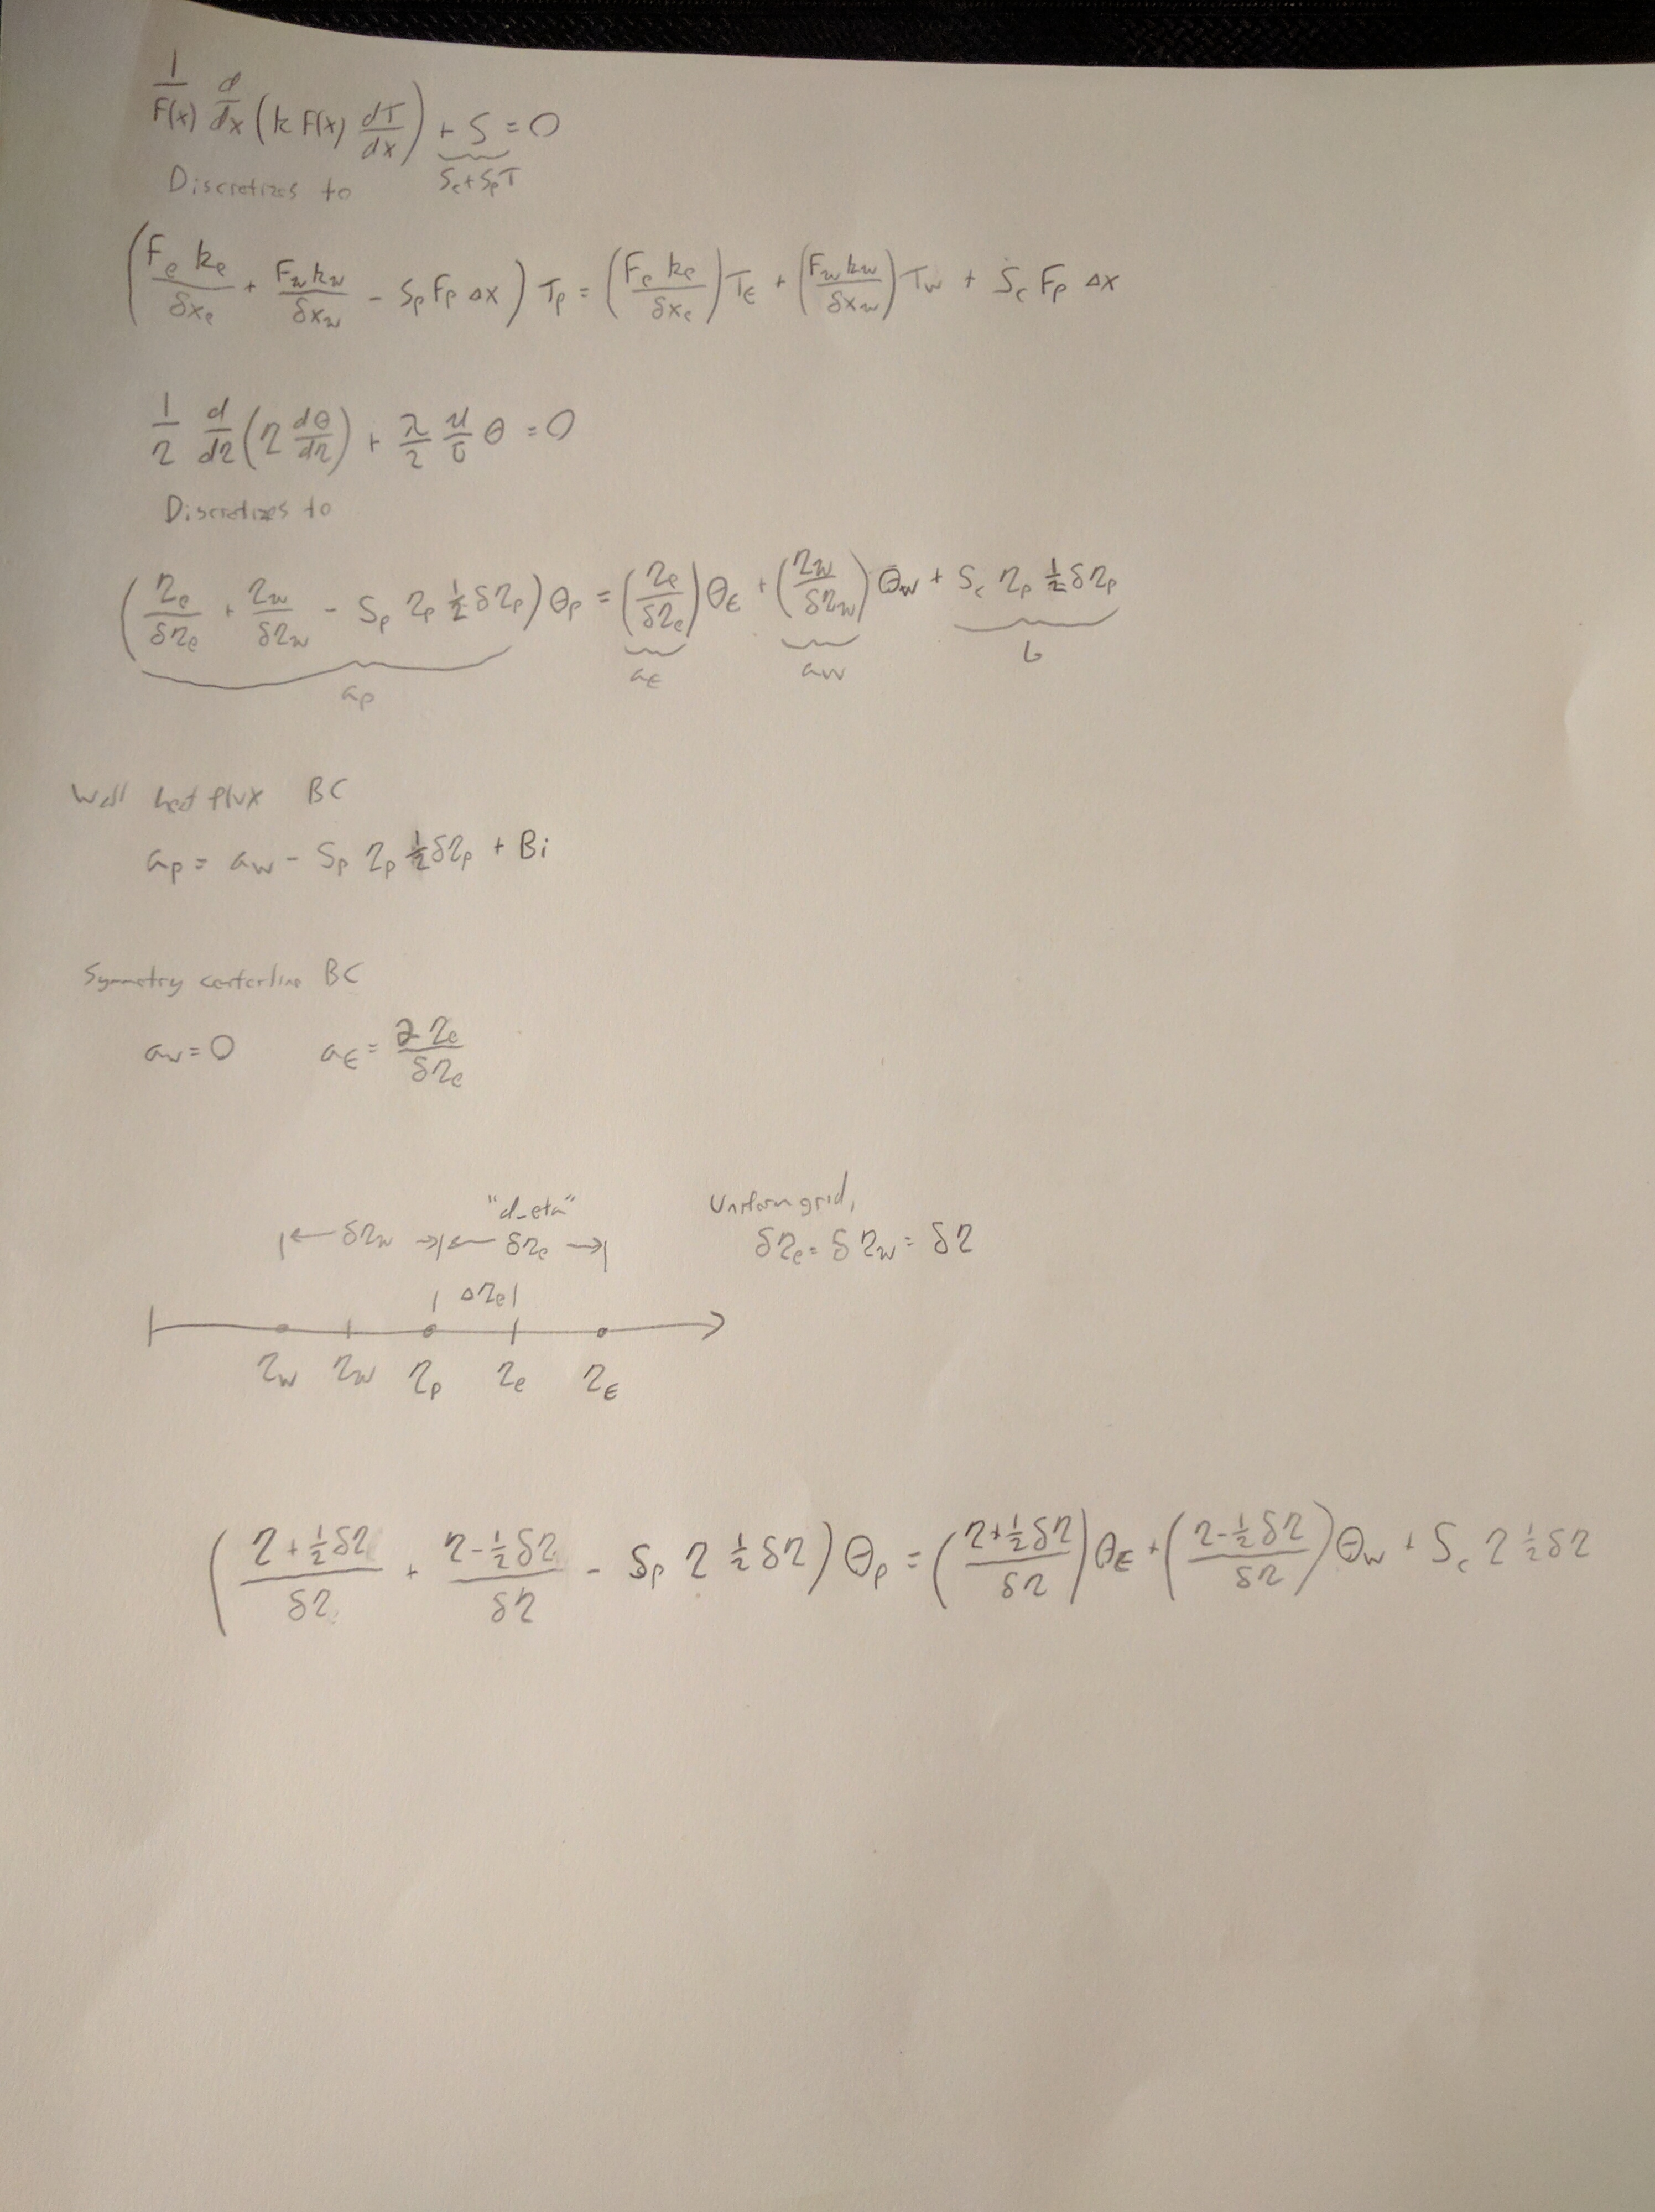 1/F(x) d/dx (k F(x) dT/dx) + S = 0
Sc + SpT
Discretizes to
(Fe ke/δxe + Fw kw/δxw - Sp Fp Δx) Tp = (Fe ke/δxe) TE + (Fw kw/δxw) Tw + Sc Fp Δx
1/η d/dη (η dθ/dη) + λ/2 u/ū θ = 0
Discretizes to
(ηe/δηe + ηw/δηw - Sp ηp ½ δηp) θp = (ηe/δηe) θE + (ηw/δηw) θw + Sc ηp ½ δηp
ap aE aw b
Wall heat flux BC
ap = aw - Sp ηp ½ δηp + Bi
Symmetry centerline BC
aw = 0 aE = 2 ηe/δηe
"d_eta" Uniform grid,
|← δηw →|← δηe →| δηe = δηw = δη
| Δηe |
ηW ηw ηp ηe ηE
(η + ½ δη/δη + η - ½ δη/δη - Sp η ½ δη) θp = (η + ½ δη/δη) θE + (η - ½ δη/δη) θw + Sc η ½ δη